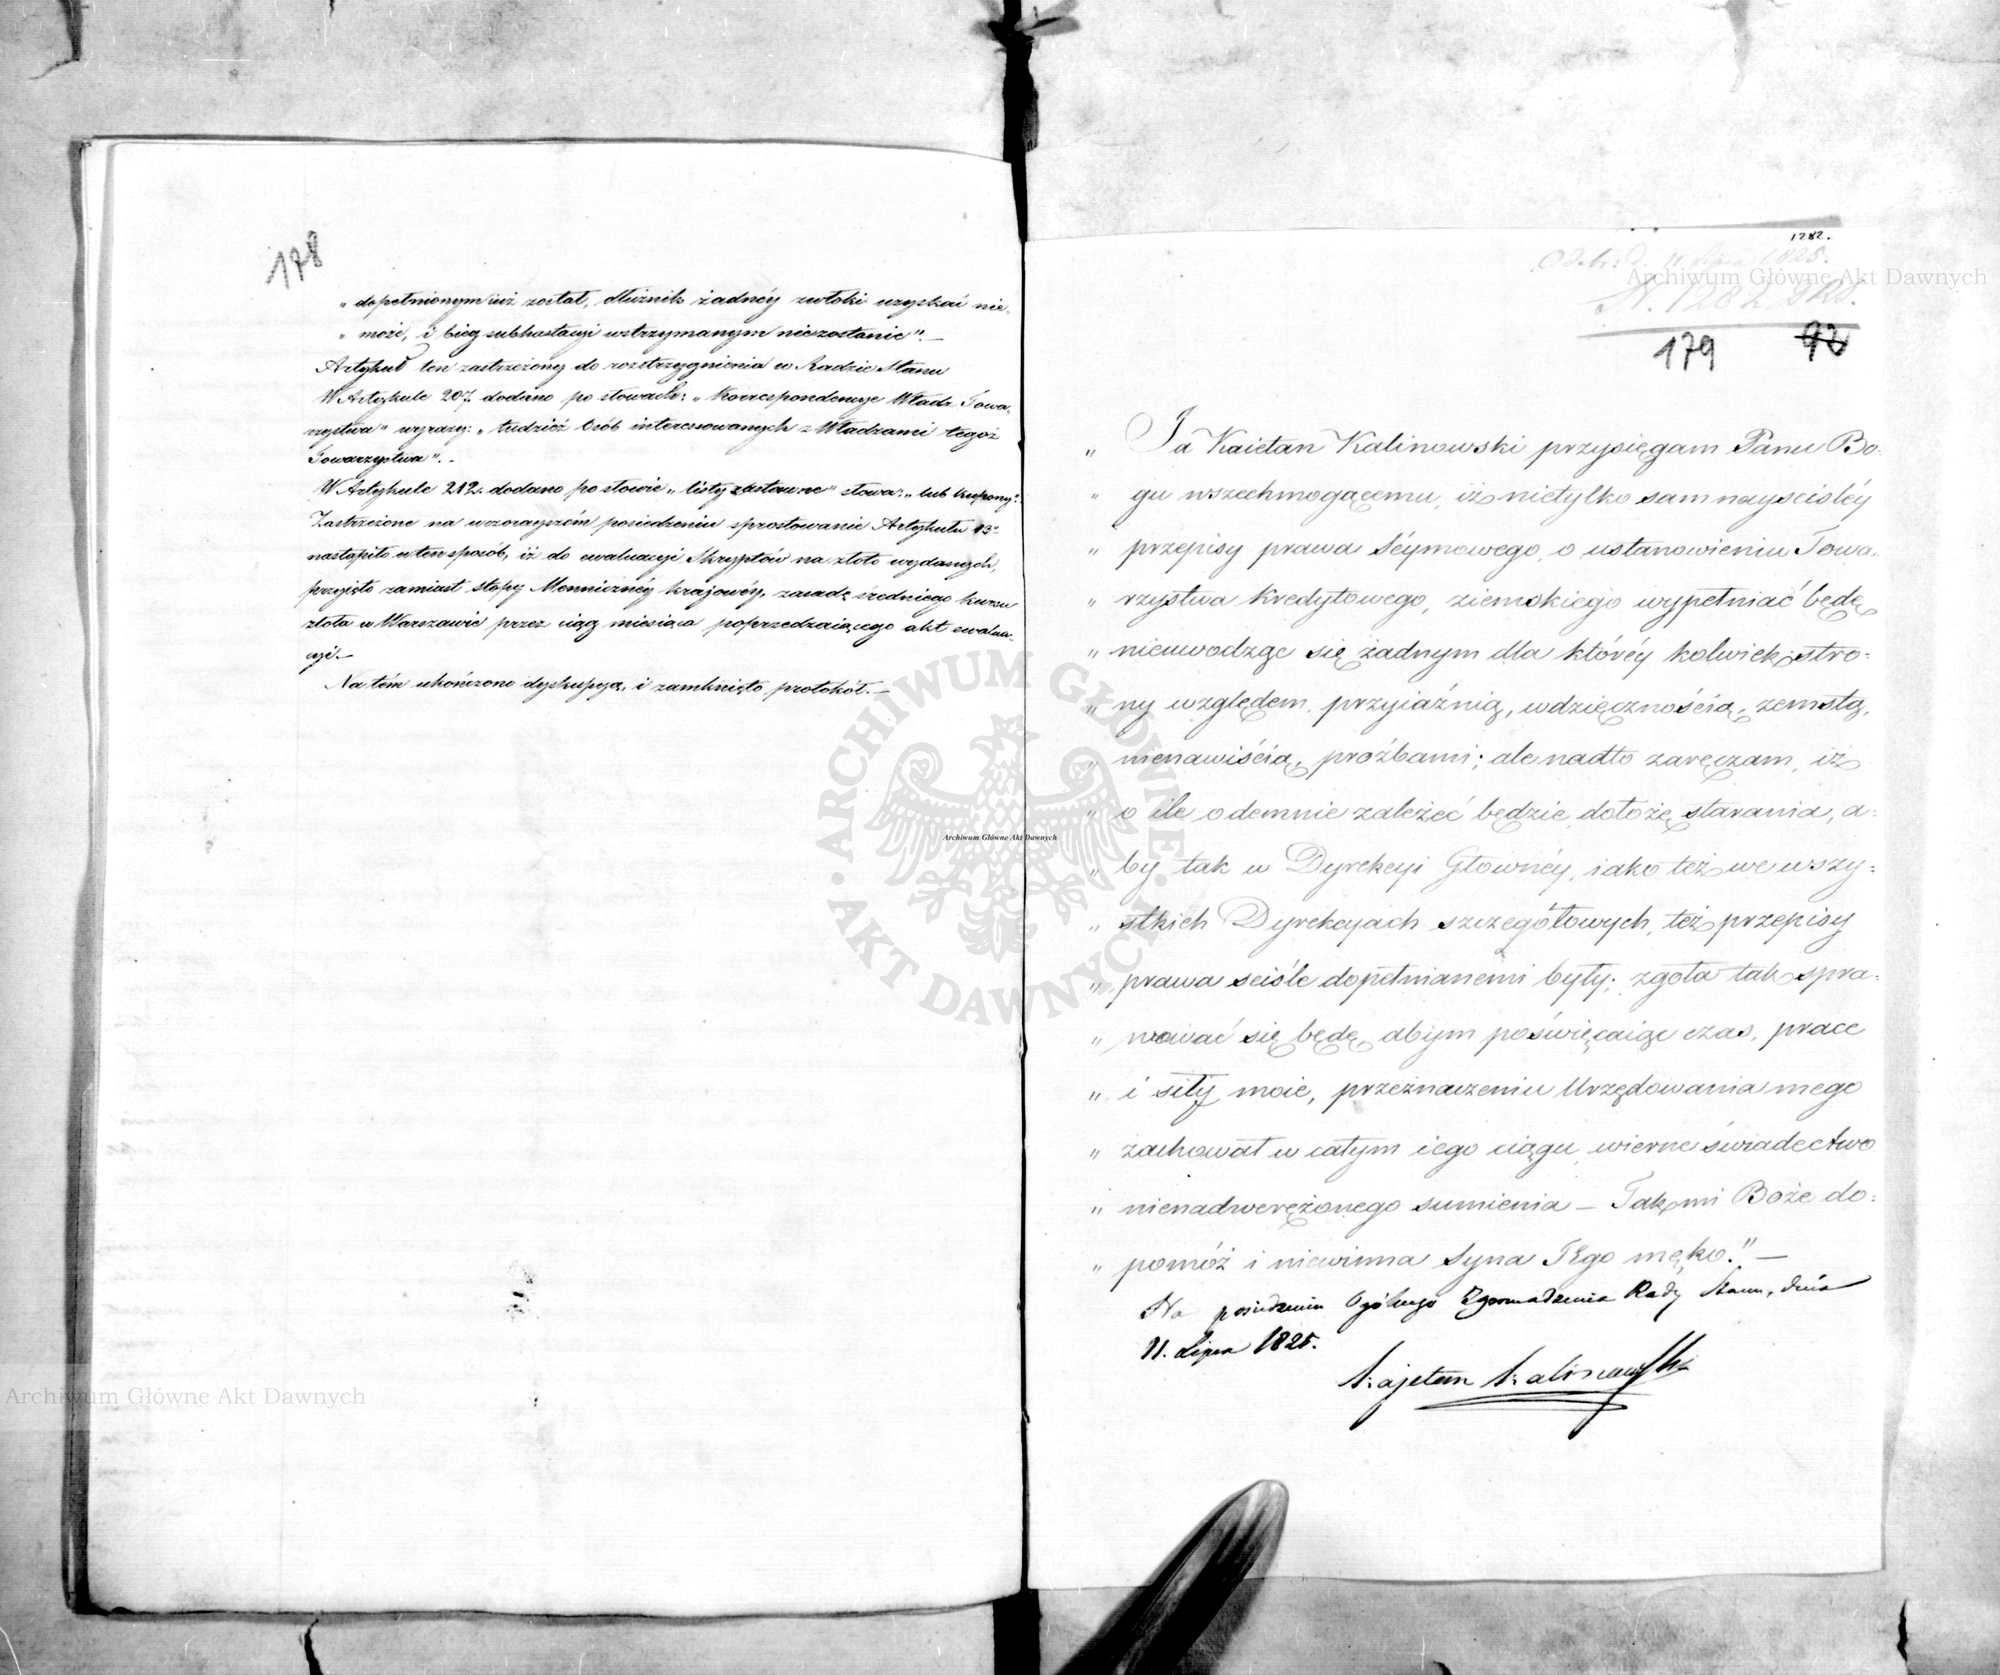 178
„ dopełnionym iuż został, dłużnik żadnéy zwłoki uzyskać nie„
„ może, i bieg subhastacyi wstrzymanym niezostanie”. —
Artykuł ten zastrzeżony do rozstrzygnienia w Radzie Stanu
W Artykule 207. dodano po słowach: „Korrespondencye Władz Towa-
rzystwa” wyrazy: „tudzież Osób interessowanych z Władzami tegoż
Towarzystwa”. –
W Artykule 212. dodano po słowie „listy zastawne” słowa: „lub kupony”.
Zastrzeżone na wczorayszém posiedzeniu sprostowanie Artykułu 13º
nastąpiło w ten sposób, iż do ewaluacyi Skryptów na złoto wydanych,
przyięto zamiast stopy Menniczнéy krajowéy, zasadę średniego kursu
złota w Warszawie przez ciąg miesiąca poprzedzaiącego akt ewalua-
cyi. —
Na tém ukończono dyskussyą, i zamknięto protokół. —
1282.
Odebr: d. 11 Lipca 1825.
N. 1282
179
„ Ja Kaietan Kalinowski przysięgam Panu Bo-
„ gu wszechmogącemu, iż nietylko sam nayściśléy
„ przepisy prawa Séymowego, o ustanowieniu Towa-
„ rzystwa Kredytowego, ziemskiego wypełniać będę
„ nieuwodząc się żadnym dla któréy kolwiek stro-
„ ny względem, przyiaźnią, wdzięcznością, zemstą,
„ nienawiścią, proźbami; ale nadto zaręczam, iż
„ o ile odemnie zależeć będzie, dołożę starania, a-
„ by tak w Dyrekcyi Głownéy, iako też we wszy-
„ stkich Dyrekcyach szczegółowych, też przepisy
„ prawa ściśle dopełnianemi były; zgoła tak spra-
„ wować się będę, abym poświęcaiąc czas, prace
„ i siły moie, przeznaczeniu Urzędowania mego
„ zachował w całym iego ciągu, wierne świadectwo
„ nienadwerężonego sumienia — Tak mi Boże do-
„ pomóż i niewinna Syna TEgo męko.” —
Na posiedzeniu Ogólnego Zgromadzenia Rady Stanu, dnia
11. Lipca 1825.
Kajetan Kalinowski
Archiwum Główne Akt Dawnych
Archiwum Główne Akt Dawnych
Archiwum Główne Akt Dawnych
ARCHIWUM GŁÓWNE · AKT DAWNYCH ·